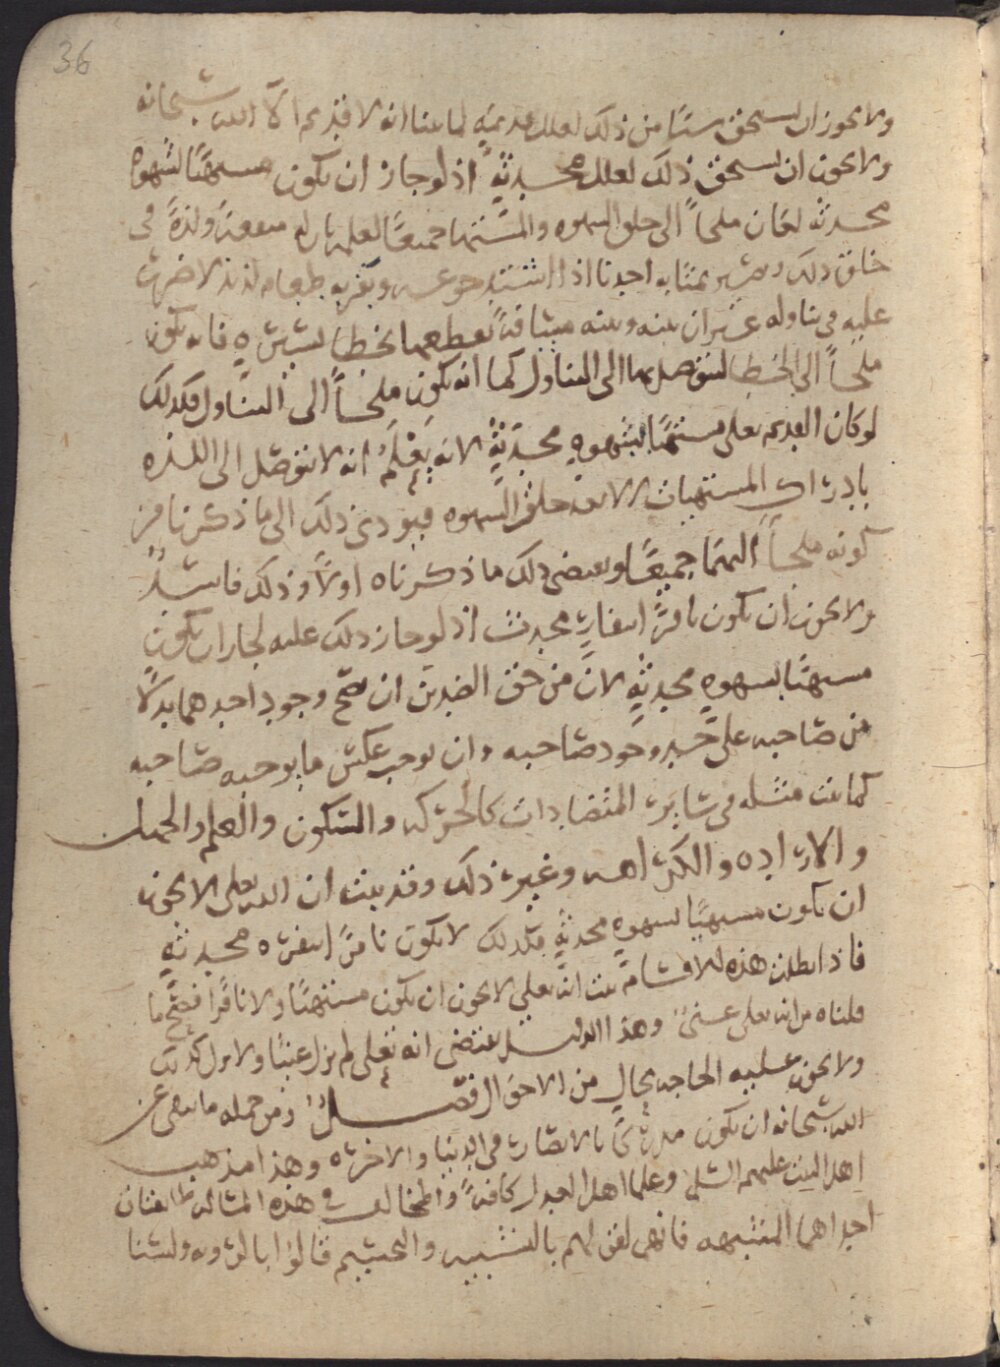 36
ولا يجوز ان يستحق شيئا من ذلك لعلل قديمة لما بينا انه لا قديم الا الله سبحانه
ولا يجوز ان يستحق ذلك لعلل محدثةٍ اذ لو جاز ان يكون مشتهيًا بشهوة
محدثه لكان ملجأً الى خلق الشهوه والمشتها جميعًا لعلمه بان له منفعةً ولذةً في
خلق ذلك ويصير بمثابة احدنا اذا اشتد جوعه وبقربه طعام لذيذ لا ضرر
عليه في تناوله غير ان بينه وبينه مسافةً يقطعها بخطا يسيره فانه يكون
ملجأً الى الخطا ليتوصل بها الى التناول كما انه يكون ملجأً الى التناول فكذلك
لو كان القديم تعلى مشتهيًا بشهوةٍ محدثةٍ لانه يَعْلَمُ انه لا يتوصل الى اللذه
بادراك المشتهيات الا بعد خلق الشهوه فيودي ذلك الى ما ذكرنا من
كونه ملجأً اليهما جميعًا ويقتضي ذلك ما ذكرناه اولاً وذلك فاسدٌ
ولا يجوز ان يكون نافرًا بنفارٍ محدث اذ لو جاز ذلك عليه لجاز ان يكون
مشتهيًا بشهوةٍ محدثةٍ لان من حق الضدين ان يصح وجود احدهما بدلاً
من صاحبه على حد وجود صاحبه وان يوجب عكس ما يوجبه صاحبه
كما يثبت مثله في سائر المتضادات كالحركه والسكون والعلم والجهل
والاراده والكراهه وغير ذلك وقد بينت ان الله تعلى لا يجوز
ان يكون مشتهيًا بشهوةٍ محدثةٍ فكذلك لا يكون نافرًا بنفره محدثةٍ
فاذا بطلت هذه الاقسام ثبت انه تعلى لا يجوز ان يكون مشتهيًا ولا نافرًا فصح ما
قلناه من انه تعلى غنيٌ وهذا الدليل يقتضي انه تعلى لم يزل غنيًا ولا يزل كذلك
ولا يجوز عليه الحاجه بحالٍ من الاحوال فصلٌ ومن جمله ما ينفى عن
الله سبحانه ان يكون مدركًا بالابصار في الدنيا والاخره وهذا مذهب
اهل البيت عليهم السلم وعلما اهل العدل كافةً والمخالف في هذه المسالة طائفتان
احداهما المشبهه فانهم لقولهم بالتشبيه والتجسيم قالوا بالرويه ولسنا